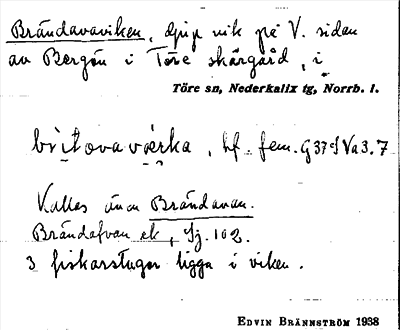 Brändavaviken, djup vik på V. sidan
av Bergön i Töre skärgård, i
Töre sn, Nederkalix tg, Norrb. l.
britova vɛrka, bf. fem. G 37 Va 3.7
Kallas även Brändavan.
Brändafvan ek, Sj. 102.
3 fiskarstugor ligga i viken.
EDVIN BRÄNNSTRÖM 1938